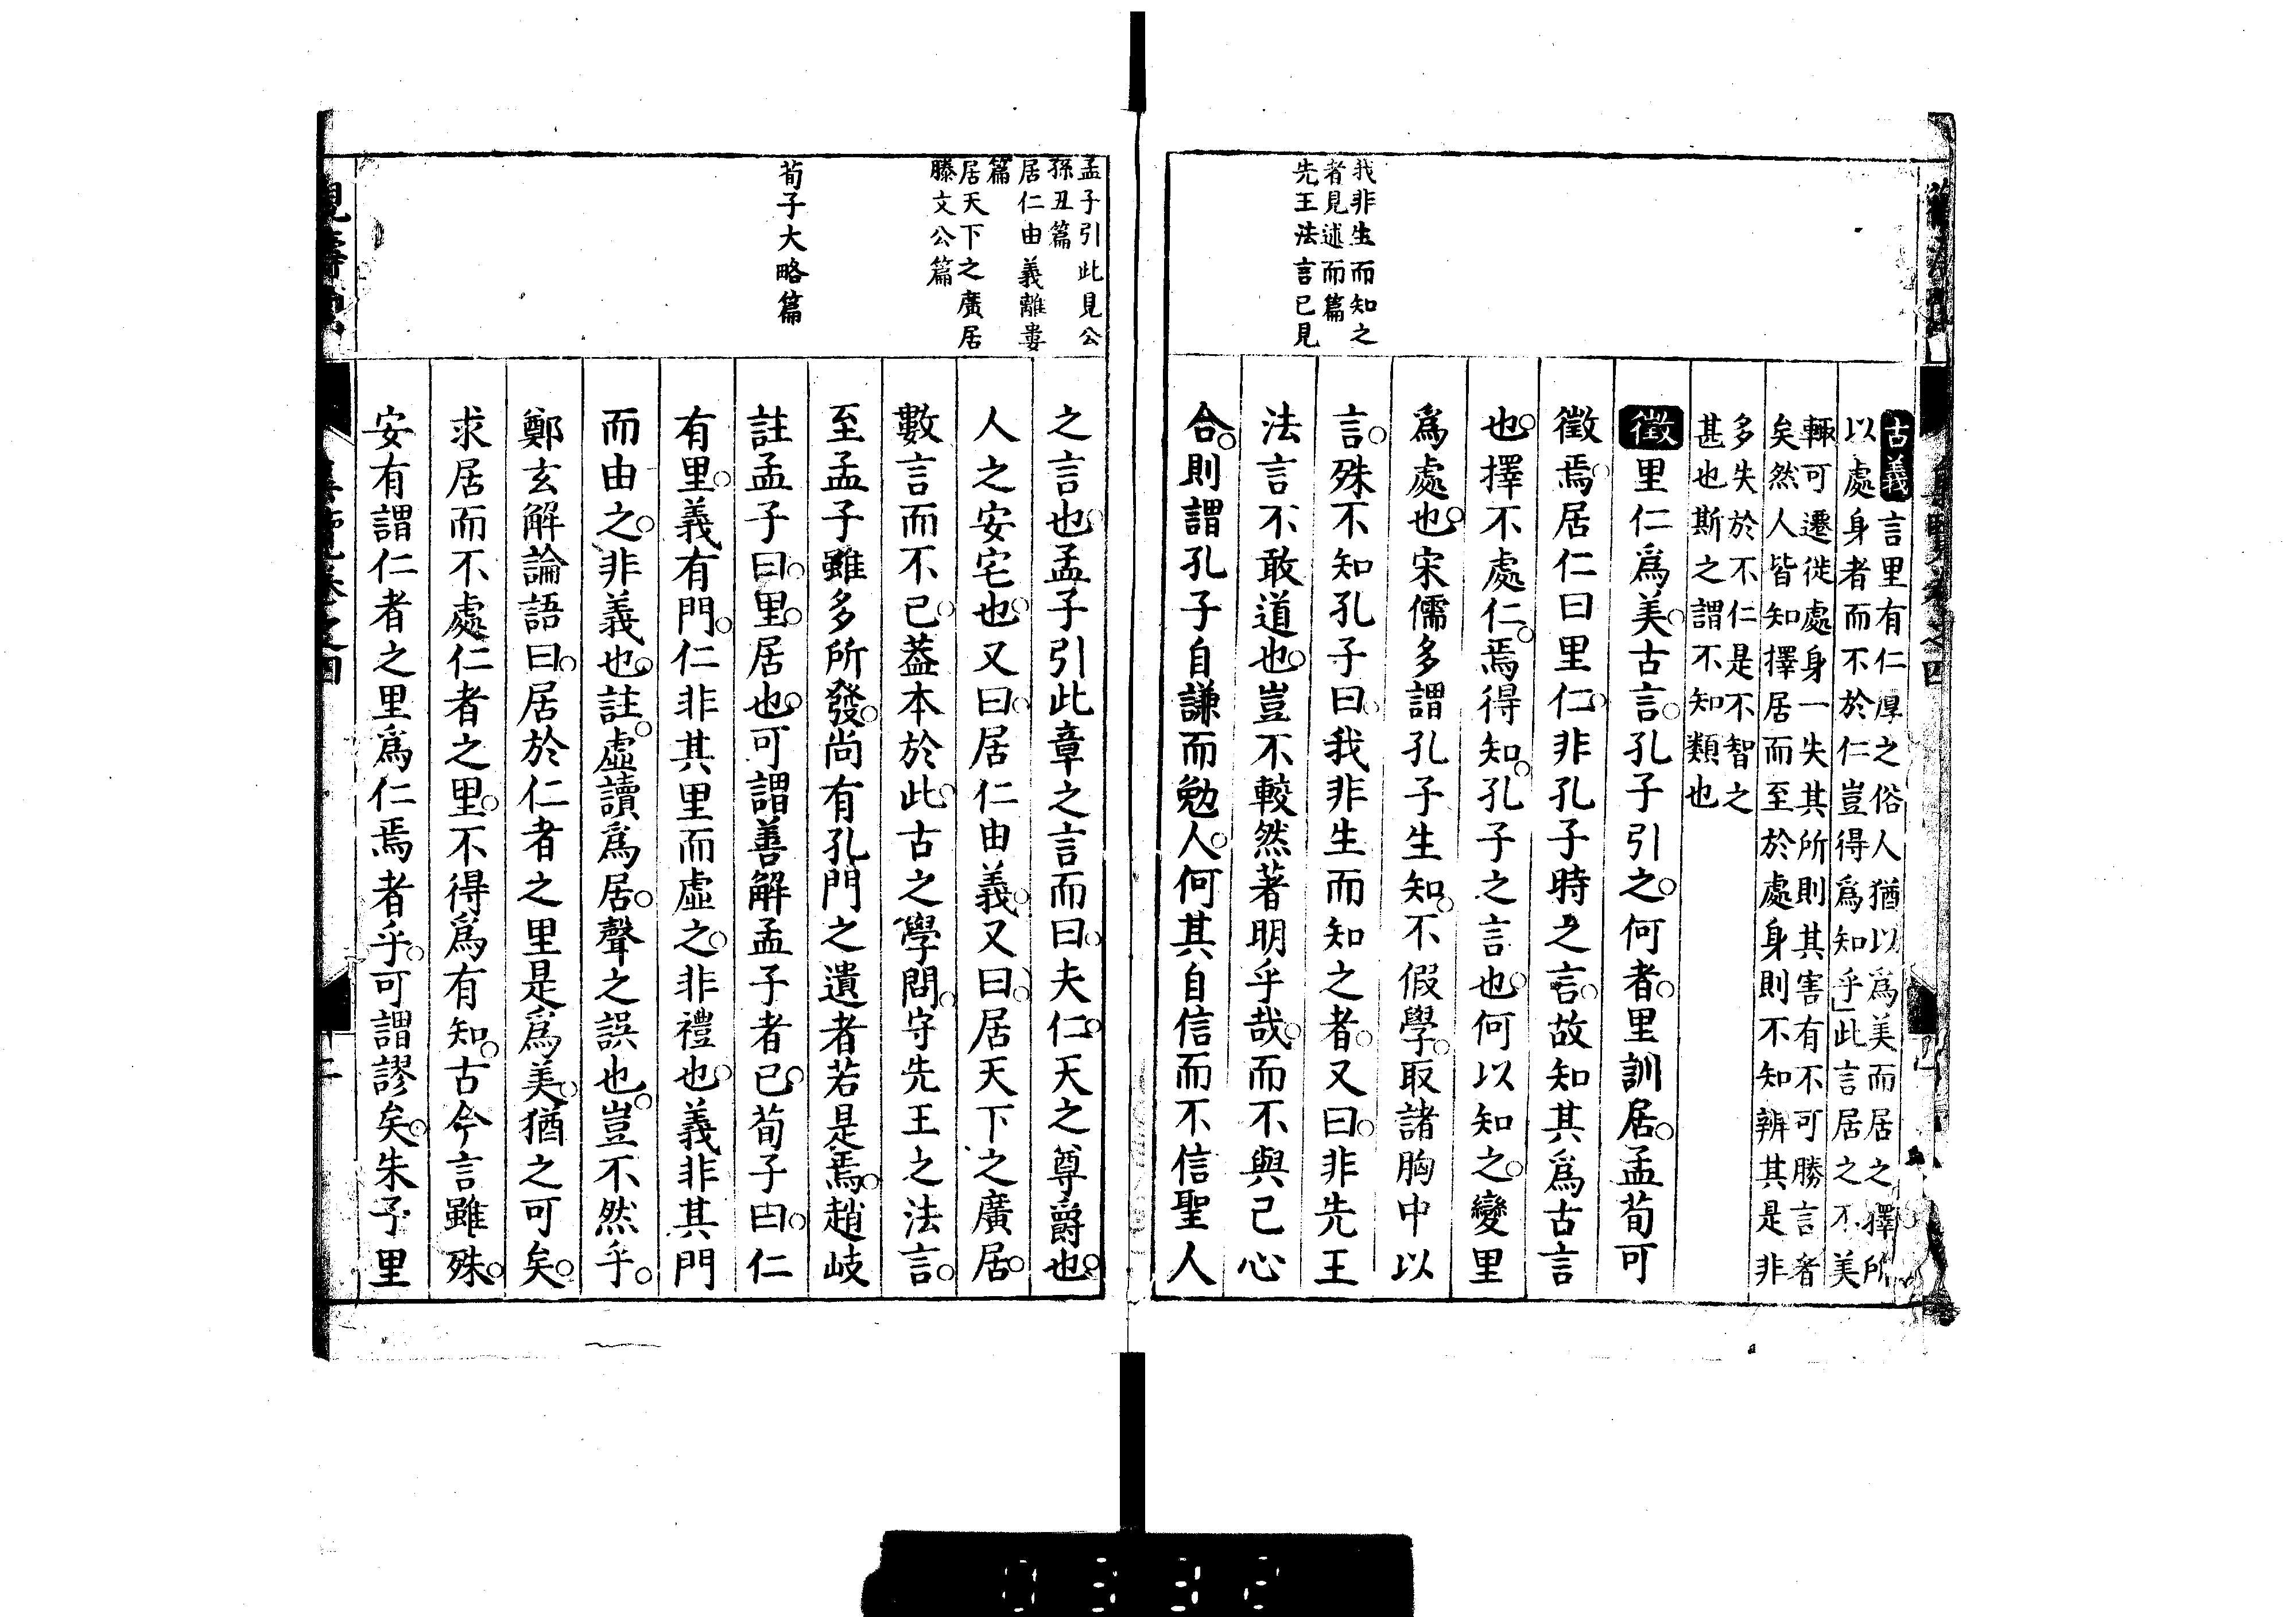 我非生而知之
者見述而篇
先王法言已見
古義言里有仁厚之俗人猶以爲美而居之擇所
以處身者而不於仁豈得爲知乎此言居之不美
輒可遷徙處身一失其所則其害有不可勝言者
矣然人皆知擇居而至於處身則不知辨其是非
多失於不仁是不智之
甚也斯之謂不知類也
徵里仁爲美古言孔子引之何者里訓居孟荀可
徵焉居仁曰里仁非孔子時之言故知其爲古言
也擇不處仁焉得知孔子之言也何以知之變里
爲處也宋儒多謂孔子生知不假學取諸胸中以
言殊不知孔子曰我非生而知之者又曰非先王
法言不敢道也豈不較然著明乎哉而不與己心
合則謂孔子自謙而勉人何其自信而不信聖人
孟子引此見公
孫丑篇
居仁由義離婁
篇
居天下之廣居
滕文公篇
荀子大略篇
之言也孟子引此章之言而曰夫仁天之尊爵也
人之安宅也又曰居仁由義又曰居天下之廣居
數言而不已蓋本於此古之學問守先王之法言
至孟子雖多所發尚有孔門之遺者若是焉趙岐
註孟子曰里居也可謂善解孟子者已荀子曰仁
有里義有門仁非其里而虛之非禮也義非其門
而由之非義也註虛讀爲居聲之誤也豈不然乎
鄭玄解論語曰居於仁者之里是爲美猶之可矣
求居而不處仁者之里不得爲有知古今言雖殊
安有謂仁者之里爲仁焉者乎可謂謬矣朱子里